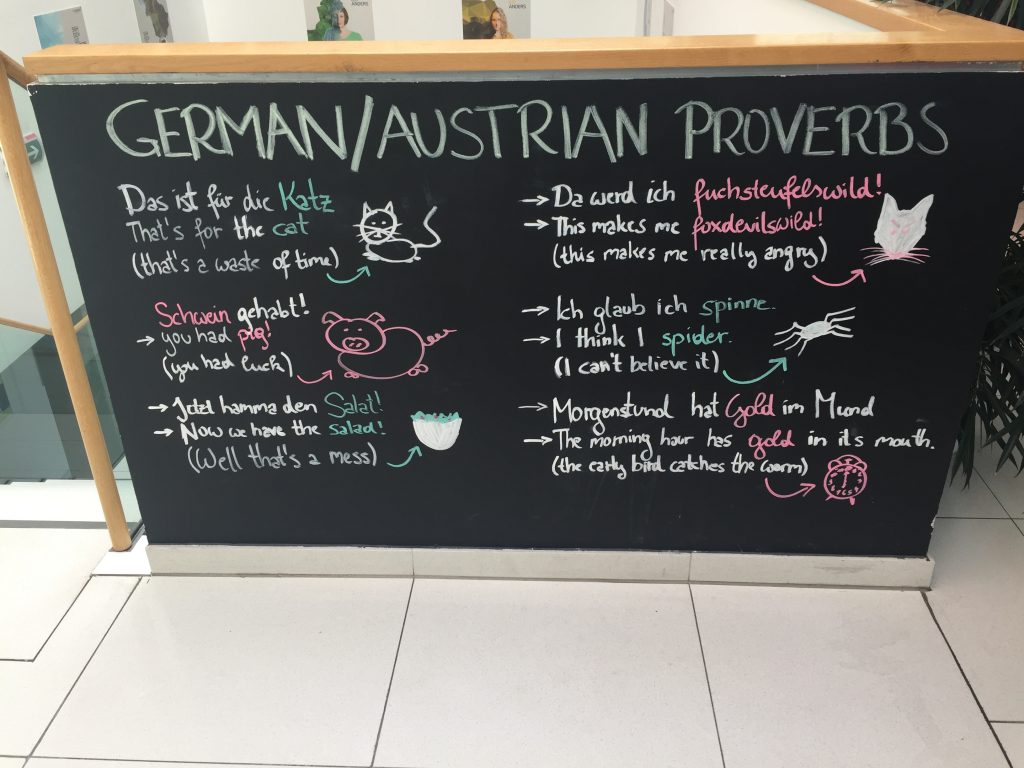 GERMAN/AUSTRIAN PROVERBS
Das ist für die Katz
That's for the cat
(that's a waste of time)
Schwein gehabt!
→ you had pig!
(you had luck)
→ Jetzt hamma den Salat!
→ Now we have the salad!
(Well that's a mess)
→ Da werd ich fuchsteufelswild!
→ This makes me foxdevilswild!
(this makes me really angry)
→ Ich glaub ich spinne.
→ I think I spider.
(I can't believe it)
→ Morgenstund hat Gold im Mund
→ The morning hour has gold in its mouth.
(the early bird catches the worm)
ANDERS
ANDERS